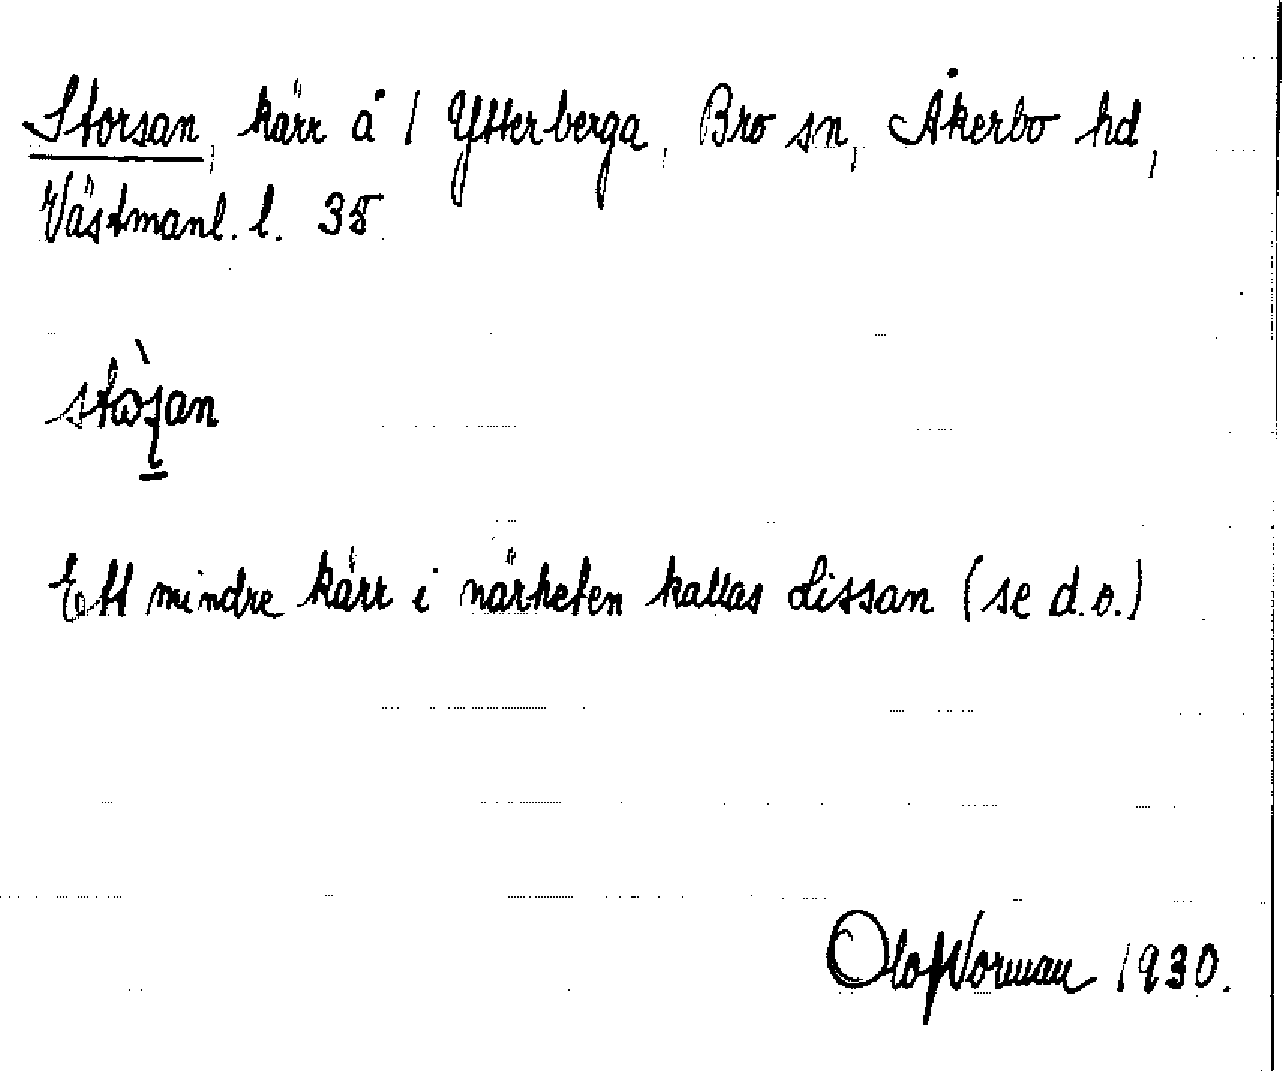 Storsan, kärr å 1 Ytterberga, Bro sn, Åkerbo hd,
Västmanl. l. 35.
Ett mindre kärr i närheten kallas Lissan (se d.o.)
Olof Norman 1930.